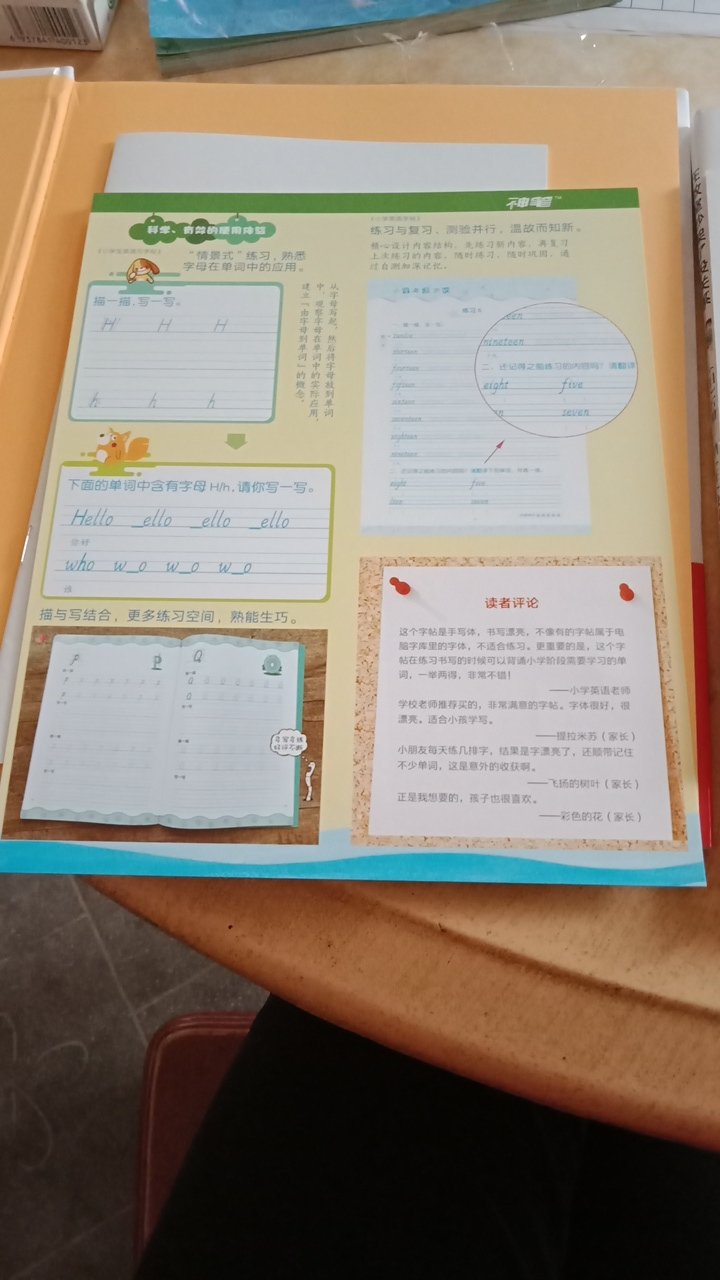 神笔™
科学、有效的使用体验
“情景式”练习，熟悉
字母在单词中的应用。
描一描，写一写。
H H H
h h h
从字母写起，然后将字母放到单词
中，观察字母在单词中的实际应用，
建立“由字母到单词”的概念。
下面的单词中含有字母 H/h，请你写一写。
Hello _ello _ello _ello
你好
who w_o w_o w_o
谁
描与写结合，更多练习空间，熟能生巧。
P P Q
练习与复习、测验并行，温故而知新。
精心设计内容结构，先练习新内容，再复习
上次练习的内容，随时练习，随时巩固，通
过自测加深记忆。
练习 5
twelve
thirteen
fourteen
fifteen
sixteen
seventeen
eighteen
nineteen
eight five
nine seven
nineteen
二、还记得之前练习的内容吗？请翻译
eight five
seven
读者评论
这个字帖是手写体，书写漂亮，不像有的字帖属于电
脑字库里的字体，不适合练习。更重要的是，这个字
帖在练习书写的时候可以背诵小学阶段需要学习的单
词，一举两得，非常不错！
——小学英语老师
学校老师推荐买的，非常满意的字帖。字体很好，很
漂亮。适合小孩学写。
——提拉米苏（家长）
小朋友每天练几排字，结果是字漂亮了，还顺带记住
不少单词，这是意外的收获啊。
——飞扬的树叶（家长）
正是我想要的，孩子也很喜欢。
——彩色的花（家长）